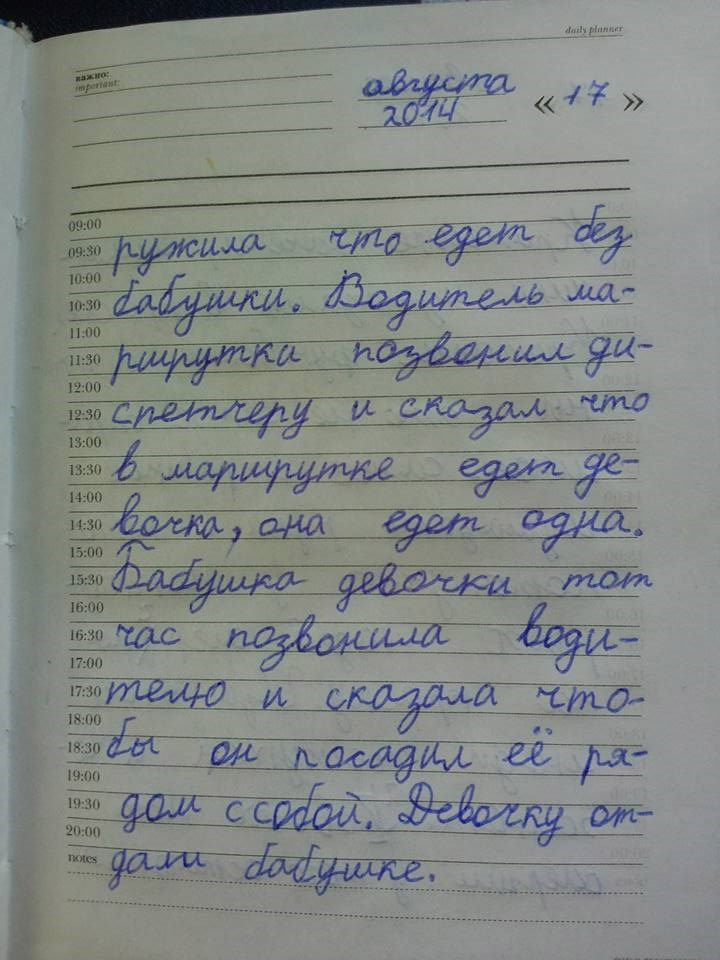 daily planner
важно:
important:
августа
2014 « 17 »
09:00
09:30 ружила что едет без
10:00
10:30 бабушки. Водитель ма-
11:00
11:30 ршрутки позвонил ди-
12:00
12:30 спетчеру и сказал что
13:00
13:30 в маршрутке едет де-
14:00
14:30 вочка, она едет одна.
15:00
15:30 Бабушка девочки тот
16:00
16:30 час позвонила води-
17:00
17:30 телю и сказала что-
18:00
18:30 бы он посадил её ря-
19:00
19:30 дом с собой. Девочку от-
20:00
notes дали бабушке.